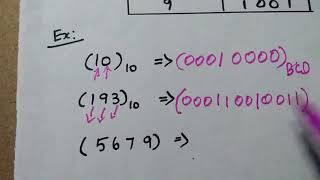 9 1001
Ex:
(10)10 => (0001 0000)BCD
(193)10 => (000110010011)
(5679) =>